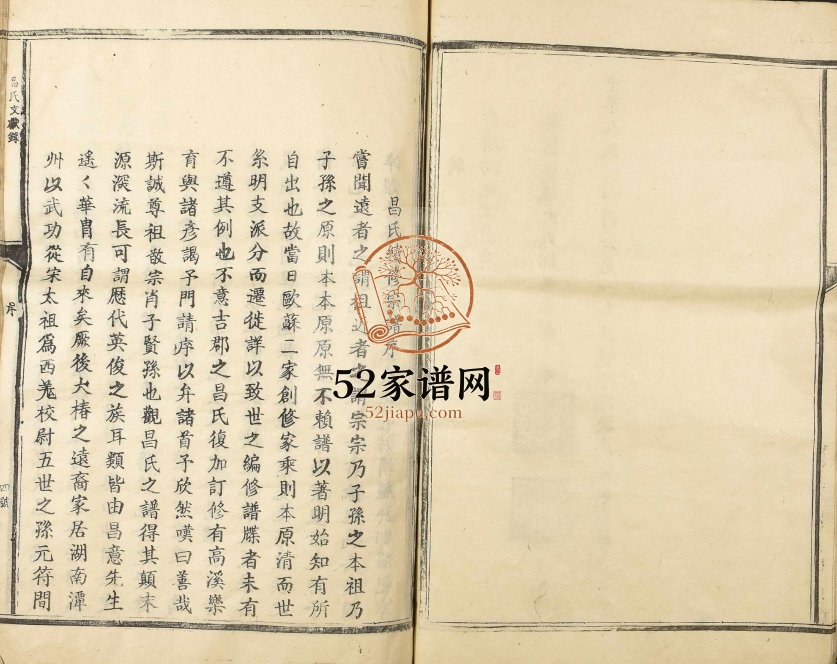 昌氏續修宗譜序
嘗聞遠者之謂祖近者之謂宗宗乃子孫之本祖乃
子孫之原則本本原原無不賴譜以著明始知有所
自出也故當日歐蘇二家創修家乘則本原清而世
系明支派分而遷徙詳以致世之編修譜牒者未有
不遵其例也不意吉郡之昌氏復加訂修有高溪樂
育與諸彥謁予門請序以弁諸首予欣然嘆曰善哉
斯誠尊祖敬宗肖子賢孫也觀昌氏之譜得其顛末
源深流長可謂歷代英俊之族耳類皆由昌意先生
遙く華胄有自來矣厥後大椿之遠裔家居湖南潭
州以武功從宋太祖為西羌校尉五世之孫元符間
昌氏文獻錄
序
四號
52家谱网
52jiapu.com